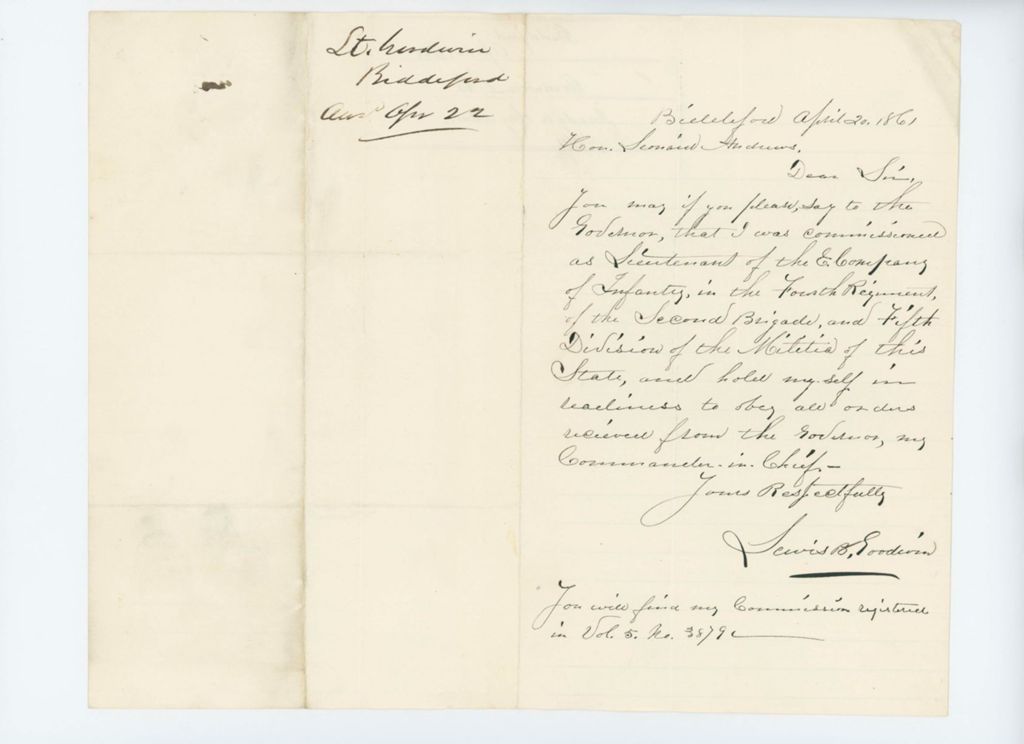 Lt. Goodwin
Biddeford
Ansd Apr 22
Biddeford April 20. 1861
Hon. Leonard Andrews.
Dear Sir,
You may if you please, say to the
Governor, that I was commissioned
as Lieutenant of the E. Company
of Infantry, in the Fourth Regiment,
of the Second Brigade, and Fifth
Division of the Militia of this
State, and hold my-self in
readiness to obey all orders
recieved from the Governor, my
Commander-in-Chief.-
Yours Respectfully
Lewis B. Goodwin
You will find my Commission registered
in Vol. 5. No. 3879